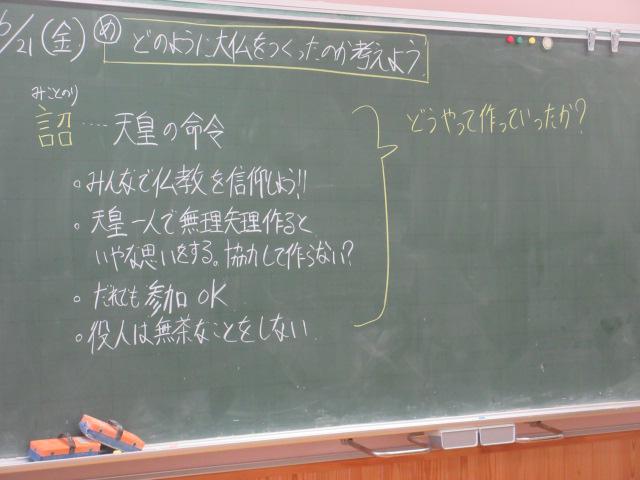 6/21(金) め どのように大仏をつくったのか考えよう。
みことのり
詔……天皇の命令
どうやって作っていったか?
。みんなで仏教を信仰しよう!!
。天皇一人で無理矢理作ると
いやな思いをする。協力して作らない?
。だれでも参加OK
。役人は無茶なことをしない